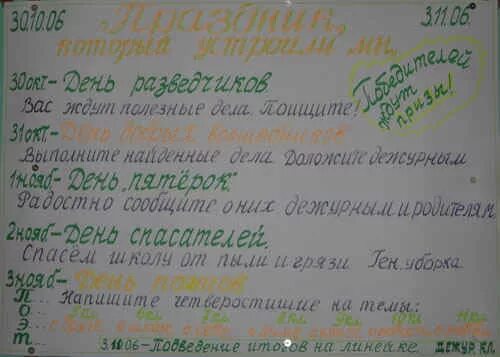 30.10.06 Праздник, 3.11.06.
который устроили мы.
Победителей ждут призы!
30 окт- День разведчиков.
Вас ждут полезные дела. Поищите!
31 окт.- День добрых волшебников.
Выполните найденные дела. Доложите дежурным
1 нояб- День "пятёрок"
Радостно сообщите о них дежурным и родителям.
2 нояб- День спасателей.
Спасём школу от пыли и грязи Ген. уборка
3 нояб- День поэтов
П... Напишите четверостишие на темы:
О...
Э...
Т... 3.10.06- Подведение итогов на линейке. ДЕЖУР. КЛ.